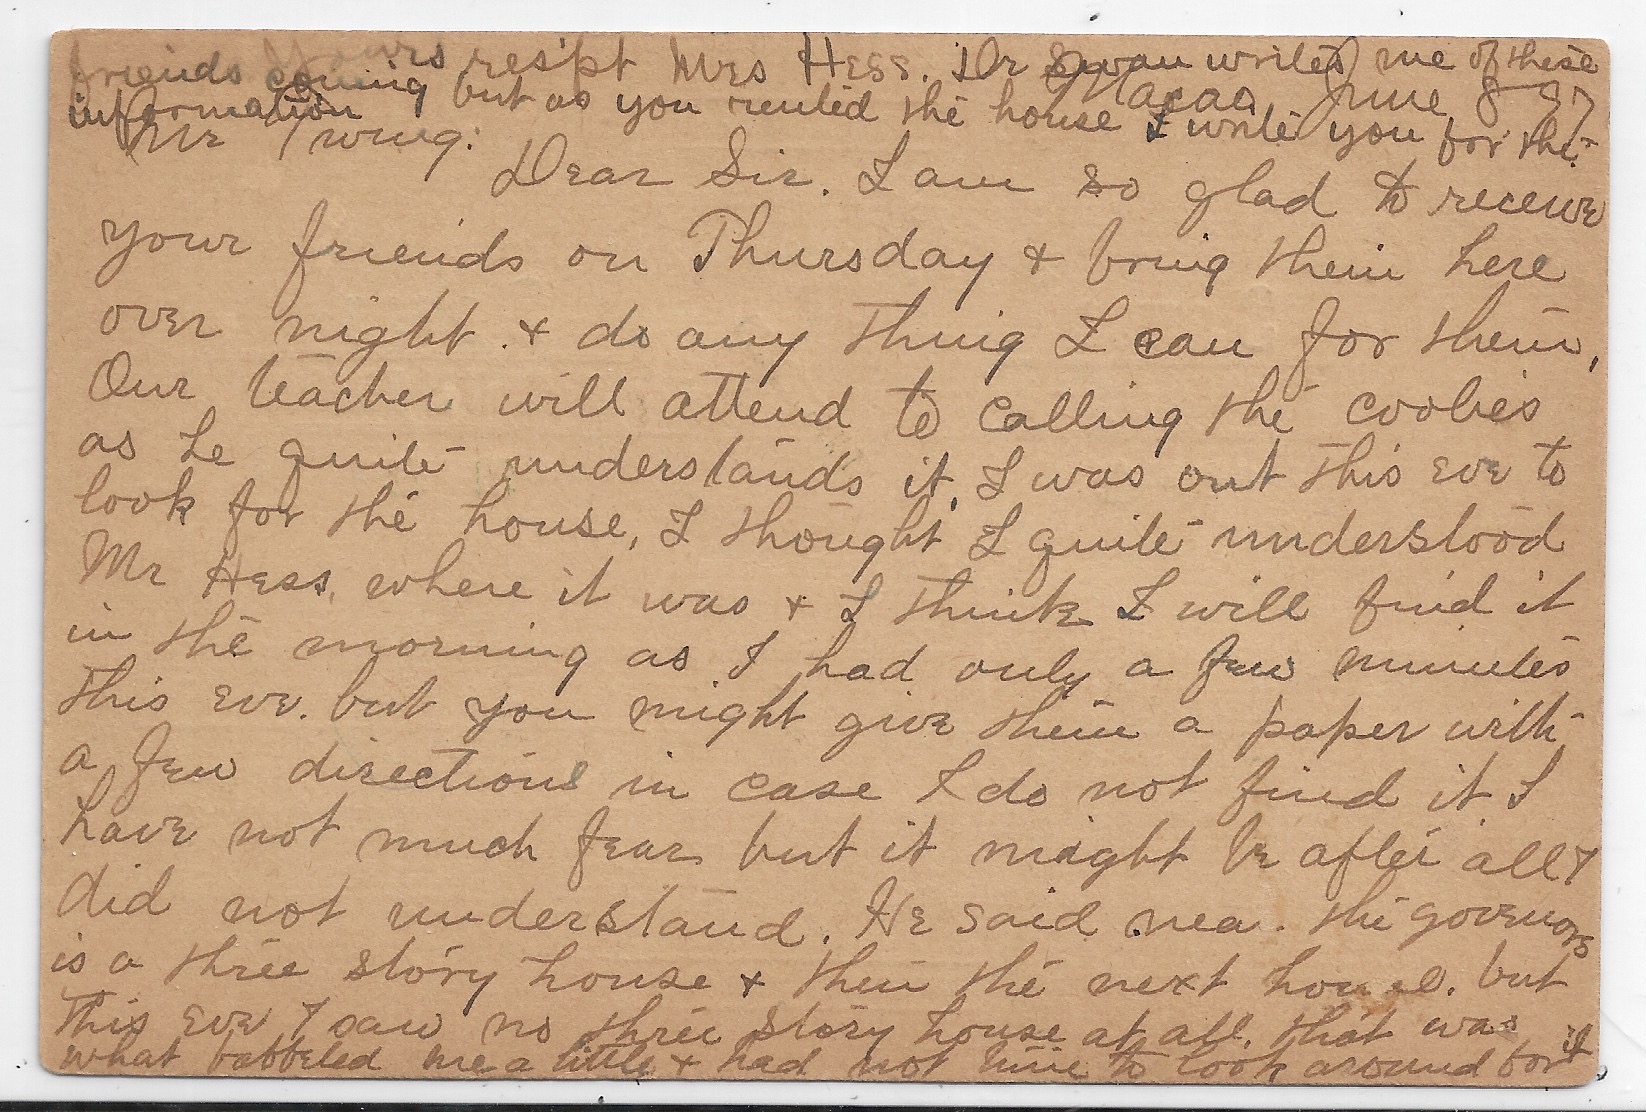 friends Yours res'pt Mrs Hess. Dr Swan writes me of these
coming but as you rented the house I write you for the
information
Macao June 8 - 97
Mr Twing:
Dear Sir. I am so glad to receive
your friends on Thursday & bring them here
over night. & do any thing I can for them.
Our teacher will attend to calling the coolies
as he quite understands it. I was out this eve to
look for the house, I thought I quite understood
Mr Hess, where it was & I think I will find it
in the morning as I had only a few minutes
this eve. but you might give them a paper with
a few directions in case I do not find it I
have not much fear but it might be after all I
did not understand. He said nea. the governors
is a three story house & then the next house. but
this eve I saw no three story house at all. that was
what bobbled me a little & had not time to look around for it